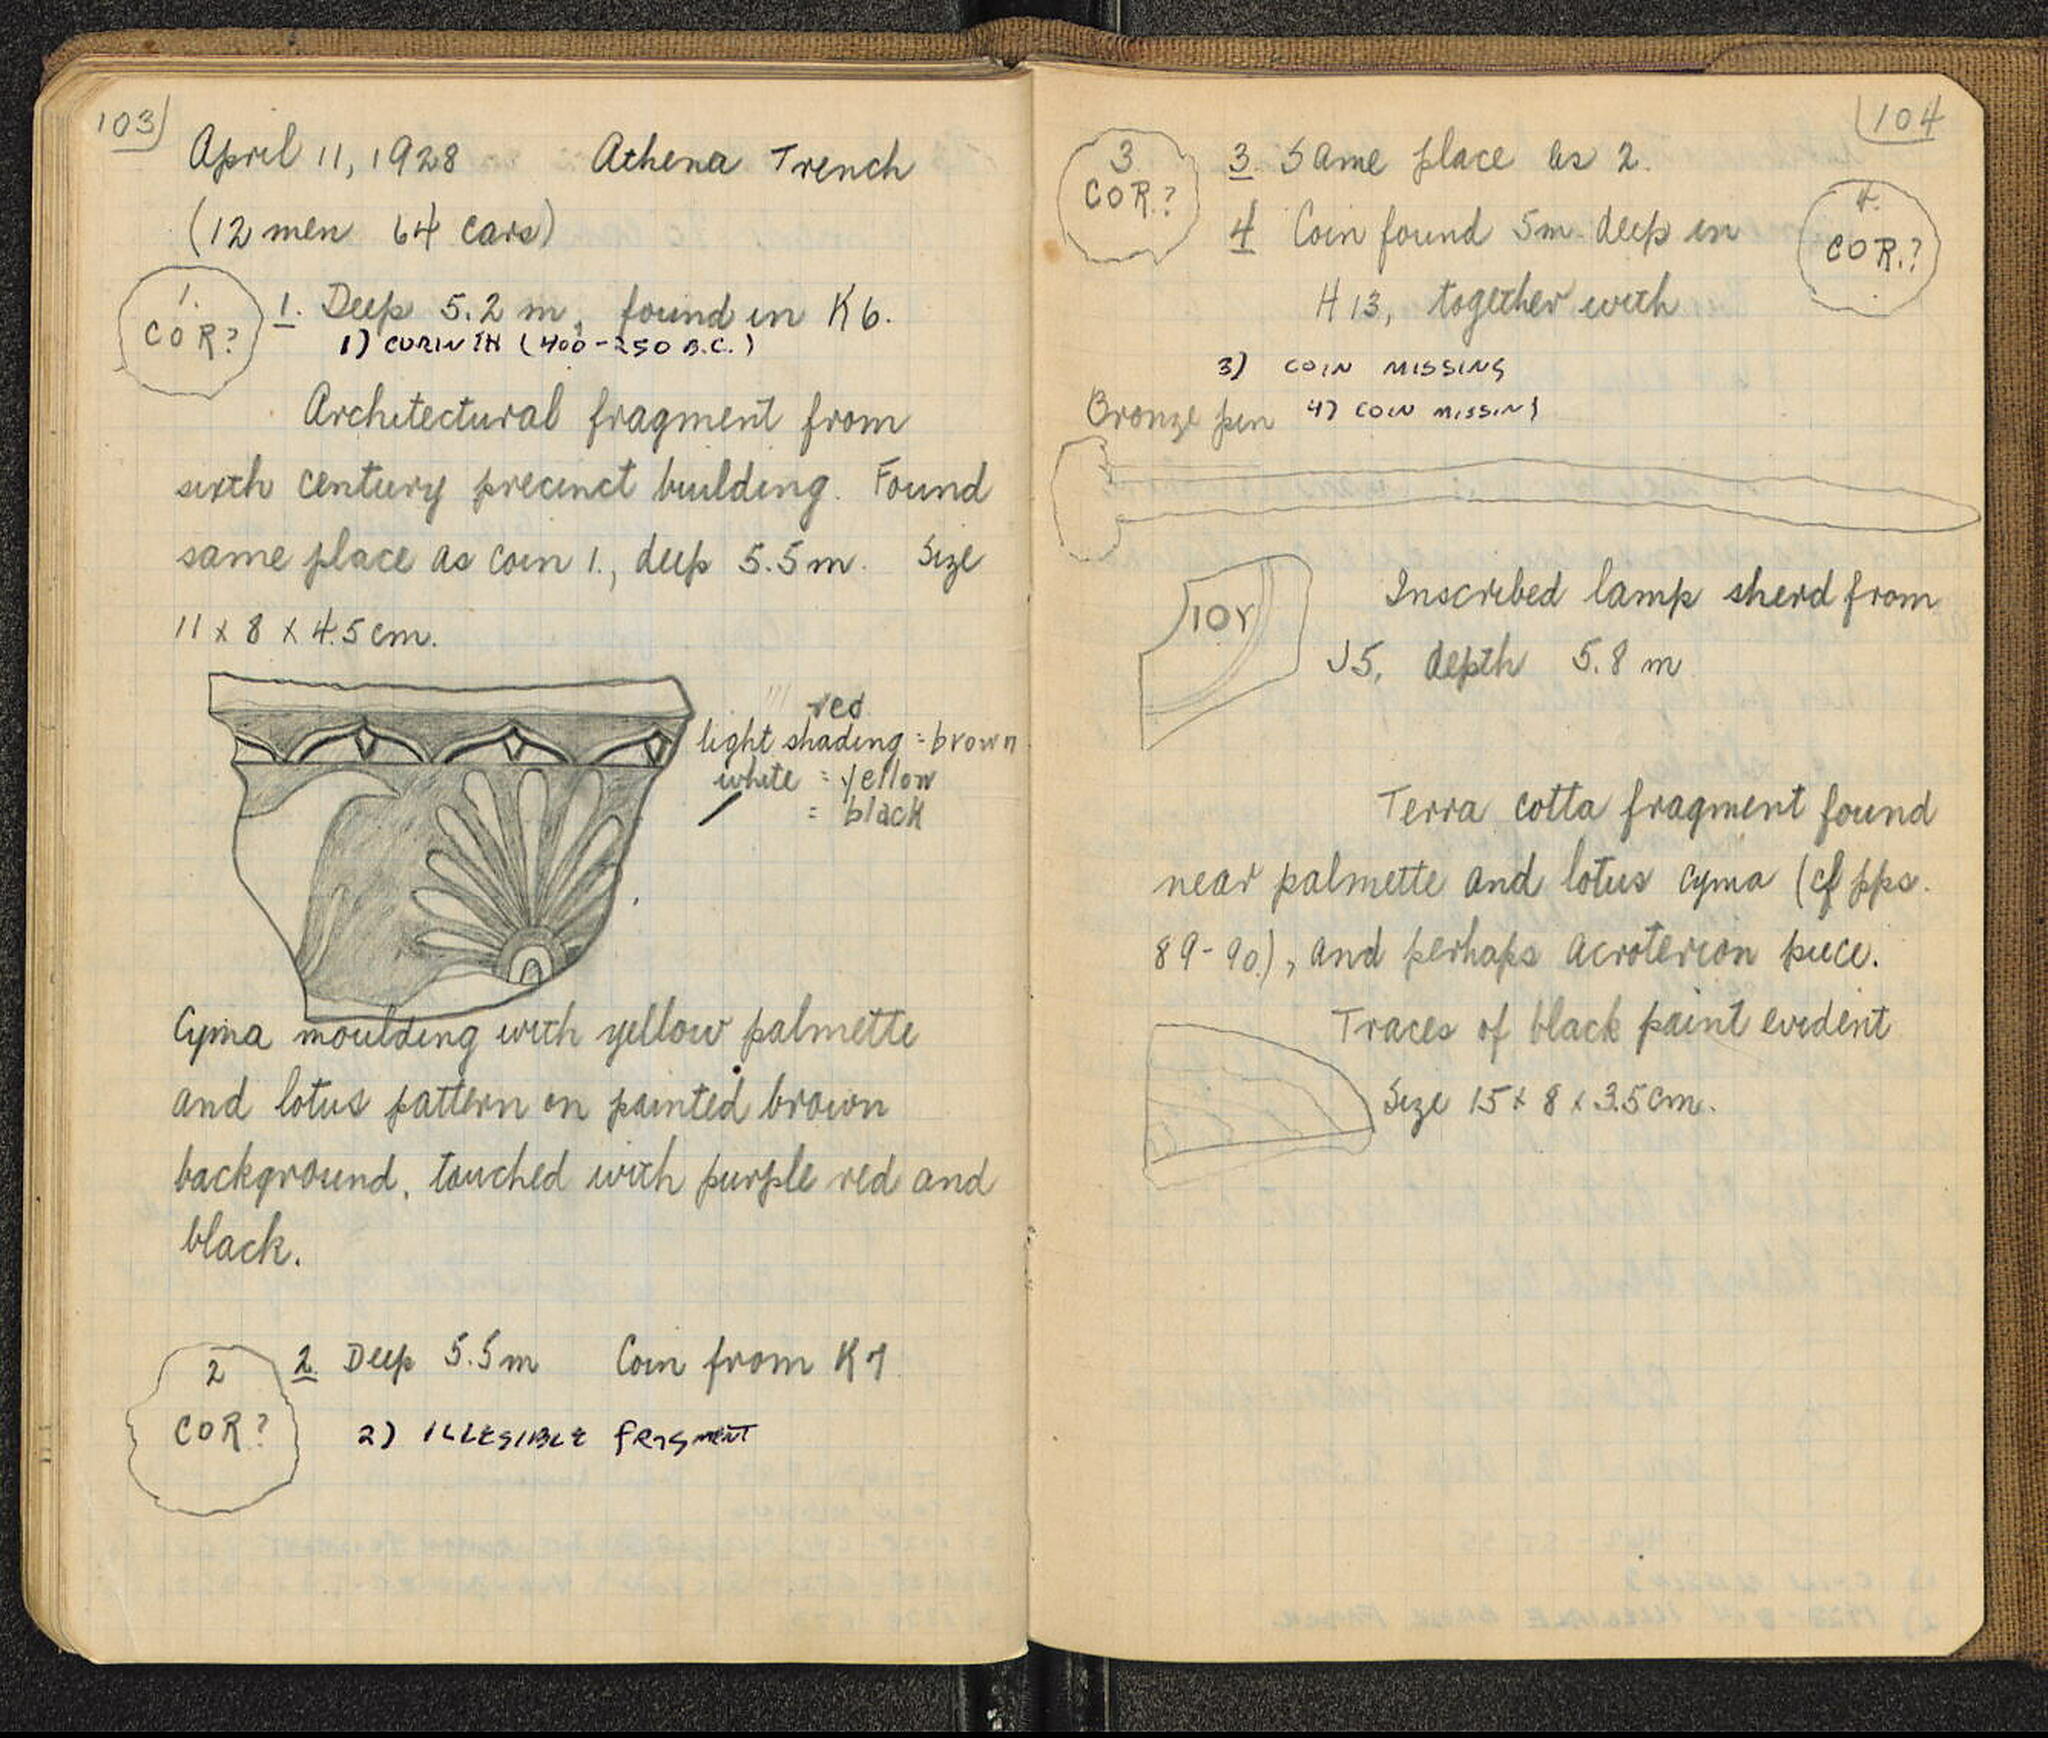 103
April 11, 1928 Athena Trench
(12 men 64 cars)
1.
COR?
1. Deep 5.2 m, found in K6.
1) CORINTH (400-250 B.C.)
Architectural fragment from
sixth century precinct building. Found
same place as coin 1., deep 5.5 m. Size
11 x 8 x 4.5 cm.
red
light shading = brown
white = yellow
= black
Cyma moulding with yellow palmette
and lotus pattern on painted brown
background, touched with purple red and
black.
2
COR?
2. Deep 5.5 m Coin from K7
2) ILLEGIBLE fragment
104
3
COR.?
3. Same place as 2.
4.
COR.?
4 Coin found 5m. deep in
H 13, together with
3) COIN MISSING
Bronze pin 4) COIN MISSING
IOY
Inscribed lamp sherd from
J5, depth 5.8 m
Terra cotta fragment found
near palmette and lotus cyma (cf pps.
89-90.), and perhaps acroterion piece.
Traces of black paint evident
Size 15 x 8 x 3.5 cm.